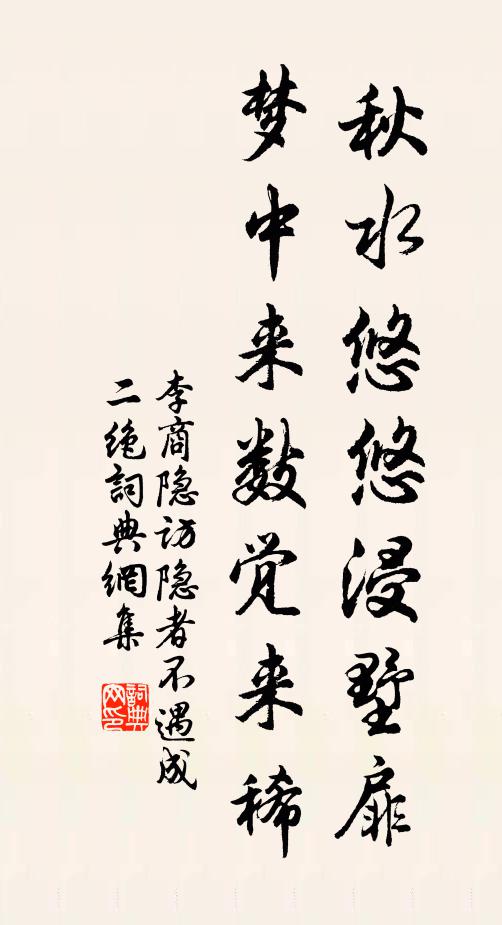 秋水悠悠浸墅扉
梦中来数觉来稀
李商隐访隐者不遇成
二绝詞典網集
詞典
网印